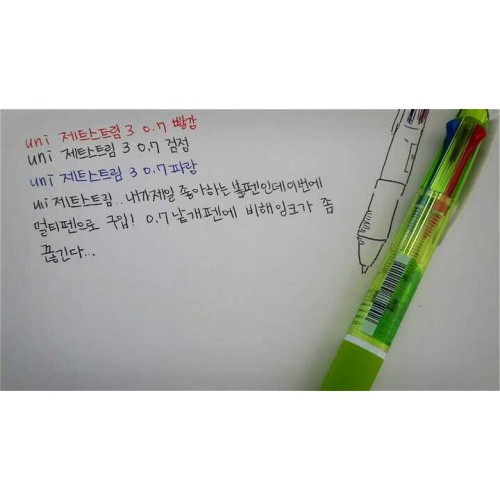 uni 제트스트림 3 0.7 빨강
uni 제트스트림 3 0.7 검정
uni 제트스트림 3 0.7 파랑
uni 제트스트림.. 내가제일 좋아하는 볼펜인데이번에
멀티펜으로 구입! 0.7 낱개펜에 비해잉크가 좀
끊긴다...